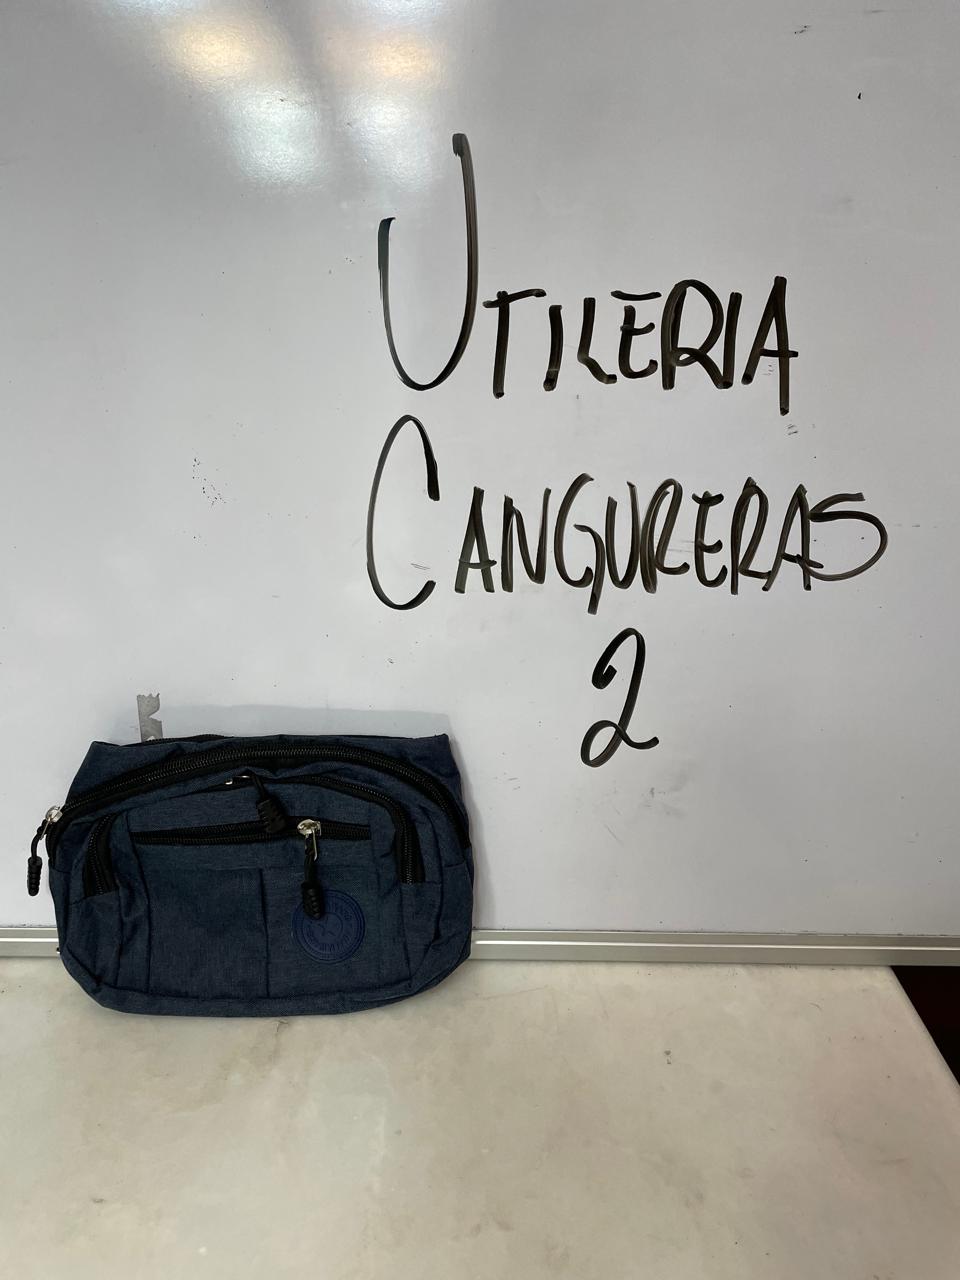 UTILERIA
CANGURERAS
2